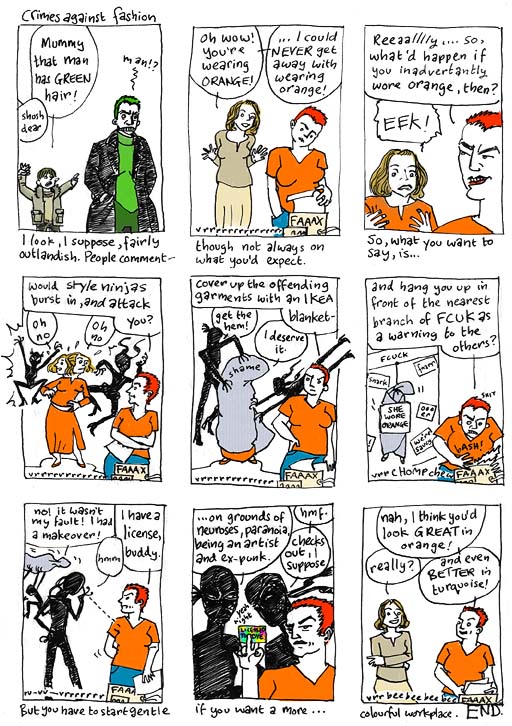 Crimes against fashion
Mummy
that man
has GREEN
hair!
man!?
shush
dear
I look, I suppose, fairly
outlandish. People comment-
Oh wow!
you're
wearing
ORANGE!
... I could
NEVER get
away with
wearing
orange!
FAAAX
though not always on
what you'd expect.
Reeaallllly.... so,
what'd happen if
you inadvertantly
wore orange, then?
EEK!
So, what you want to
say, is...
would style ninjas
burst in, and attack
you?
Oh
no
Oh
no
FAAAX
cover up the offending
garments with an IKEA
blanket-
get the
hem!
I deserve
it.
shame
FAAAX
and hang you up in
front of the nearest
branch of FCUK as
a warning to the
others?
FCUCK
snark
SHE
WORE
ORANGE
ooo
er
weird
swug
SHIT
bASH!
vrrr CHOMP chew
FAAAX
no! it wasn't
my fault! I had
a makeover!
I have a
license,
buddy.
hmm
FAAA
But you have to start gentle
...on grounds of
neuroses, paranoia,
being an artist
and ex-punk.
hmf.
checks
out, I
suppose
yeah
right
if you want a more ...
nah, I think you'd
look GREAT in
orange!
really?
and even
BETTER in
turquoise!
vrrr bee bee bee bee
FAAAX
colourful workplace. END.